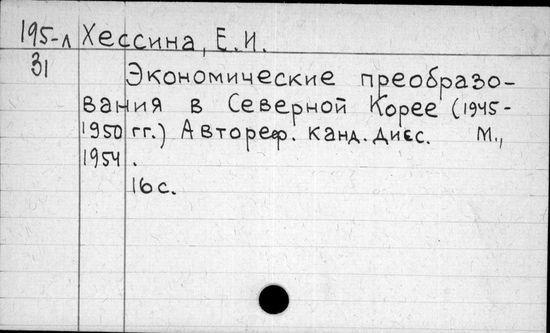 195-л Хессина, Е.И.
31
Экономические преобразо-
вания в Северной Корее (1945-
1950 гг.) Автореф. канд. дисс. М.,
1954.
16 с.